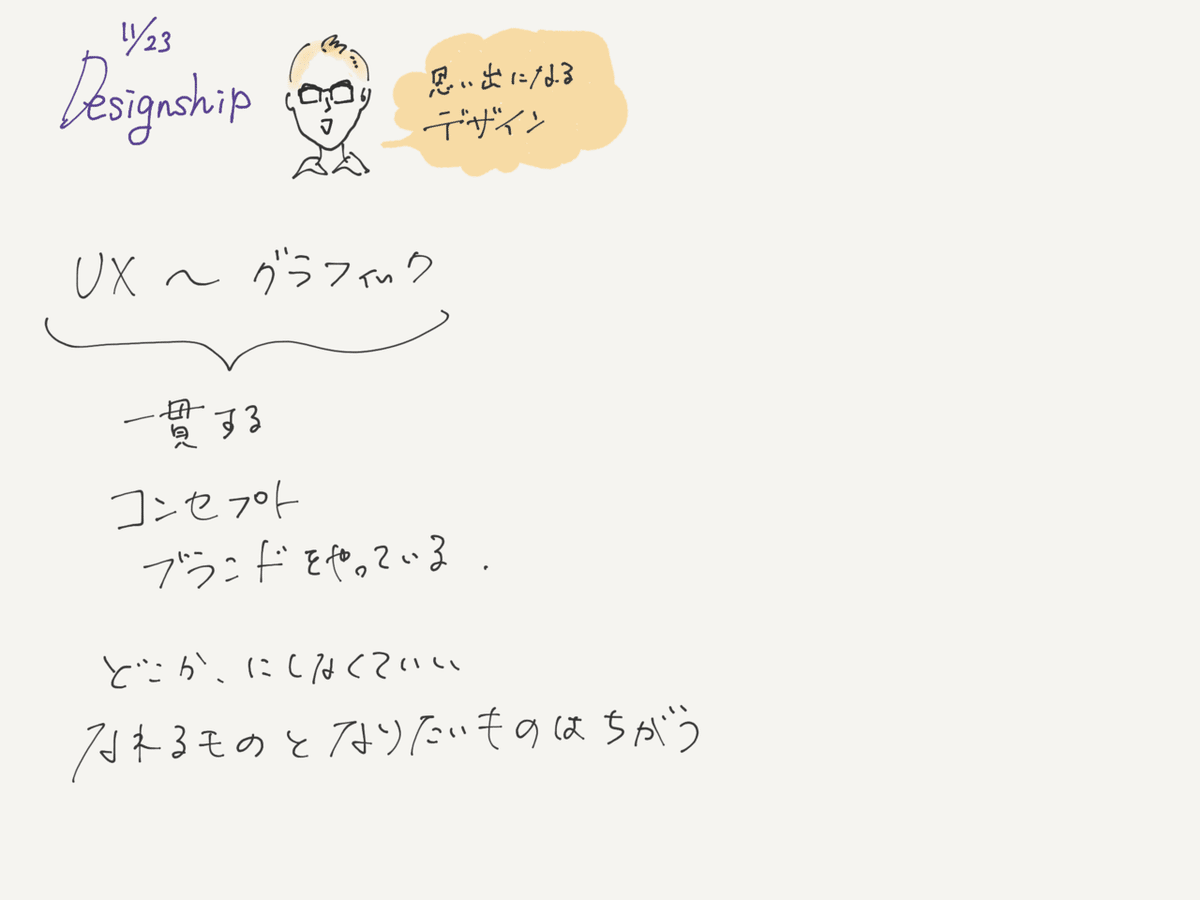 11/23
Designship
思い出になる
デザイン
UX 〜 グラフィック
一貫する
コンセプト
ブランドをやっている.
どこか、にしなくていい
なれるものとなりたいものはちがう